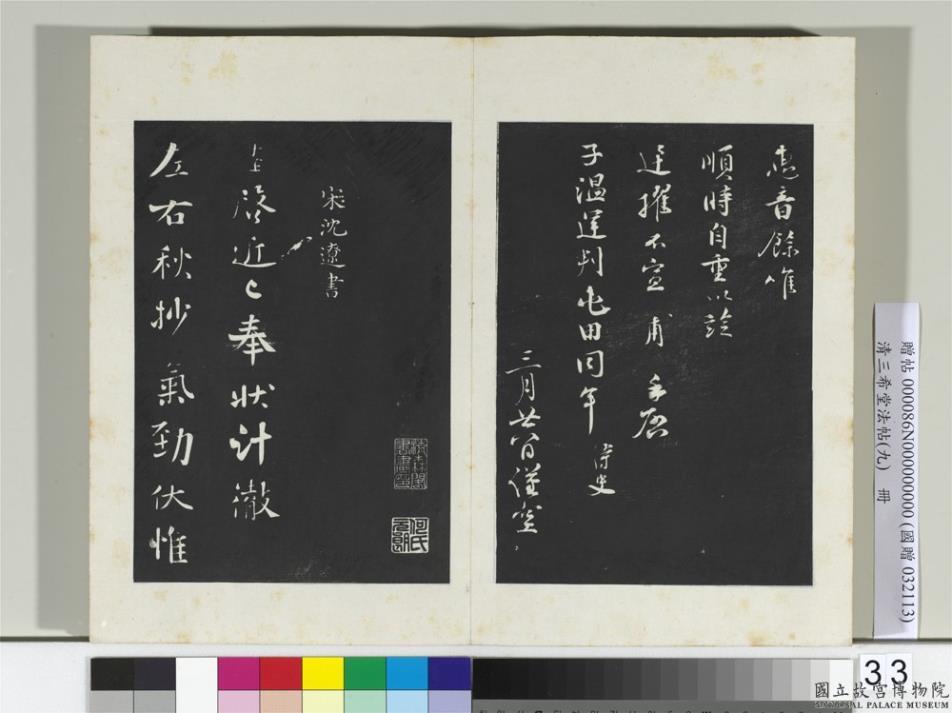 惠音餘惟
順時自重以詮
達擢不宣甫手啓
子溫運判屯田同年侍史
三月廿八日謹空
宋沈遼書
遼啓近已奉狀計徹
左右秋抄氣勁伏惟
何氏元朗
贈帖 000086N000000000 (國贈 032113)
清三希堂法帖(九) 冊
33
國立故宮博物院
NATIONAL PALACE MUSEUM